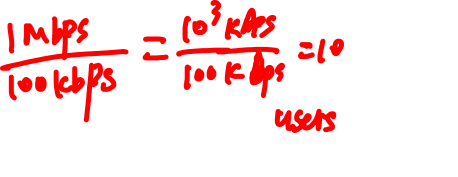 1 Mbps / 100 kbps = 10³ kbps / 100 k bps = 10
users